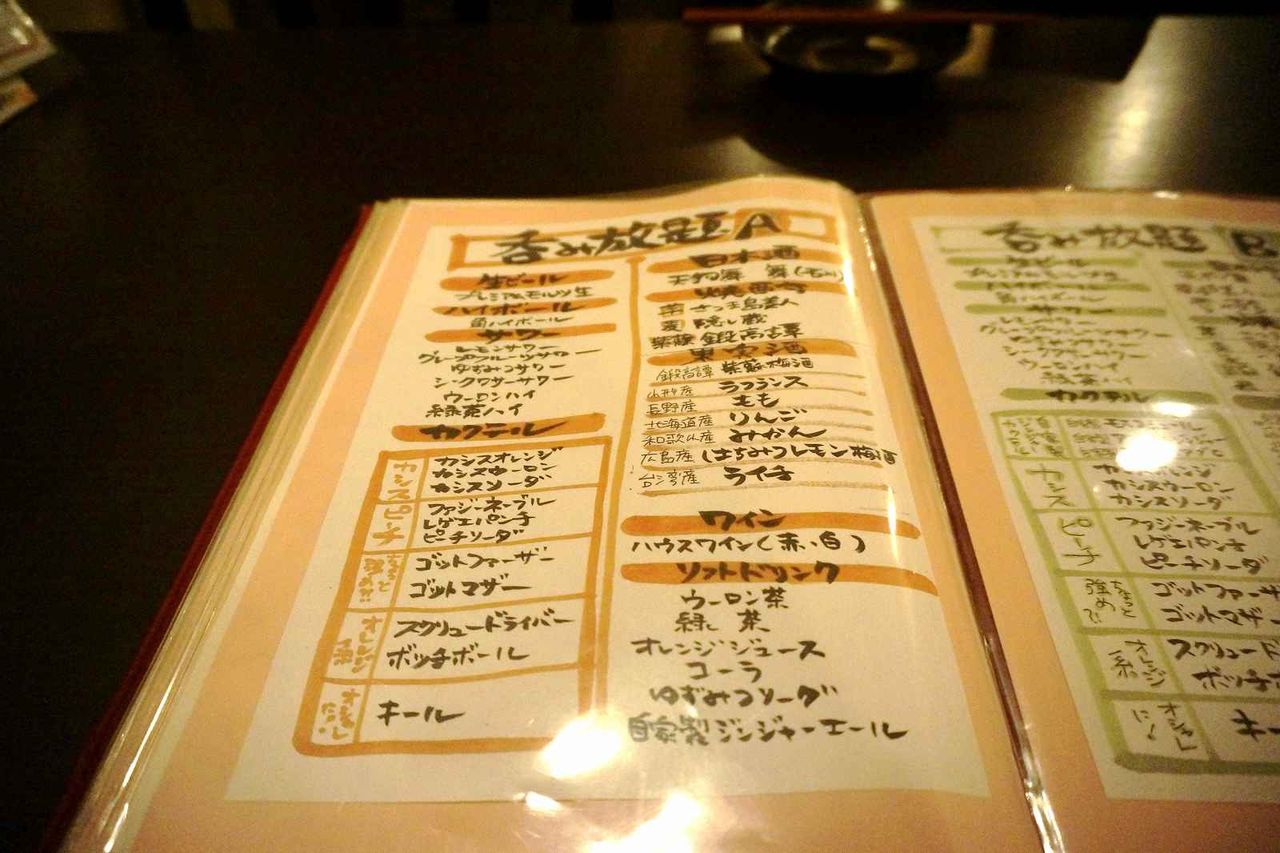 呑み放題 A
生ビール
プレミアムモルツ生
ハイボール
角ハイボール
サワー
レモンサワー
グレープフルーツサワー
ゆずみつサワー
シークワサーサワー
ウーロンハイ
緑茶ハイ
カクテル
カシス
カシスオレンジ
カシスウーロン
カシスソーダ
ピーチ
ファジーネーブル
レゲエパンチ
ピーチソーダ
ちょっと強め!!
ゴットファーザー
ゴットマザー
オレンジ系
スクリュードライバー
ボッチボール
オシャレに!
キール
日本酒
天狗舞
さつま島美人
隠し蔵
紫蘇 鍛高譚
果実酒
鍛高譚 紫蘇梅酒
山形産 ラフランス
長野産 もも
北海道産 りんご
和歌山産 みかん
広島産 はちみつレモン梅酒
台湾産 ライチ
ワイン
ハウスワイン(赤、白)
ソフトドリンク
ウーロン茶
緑茶
オレンジジュース
コーラ
ゆずみつソーダ
自家製ジンジャーエール
呑み放題 B
生ビール
プレミアムモルツ生
ハイボール
角ハイボール
サワー
レモンサワー
カクテル
カシス
カシスウーロン
カシスソーダ
ピーチ
ファジーネーブル
レゲエパンチ
ピーチソーダ
ちょっと強めで
ゴットファーザ
ゴットマザー
オレンジ系
スクリュード
ボッチ
オシャレに!
キー